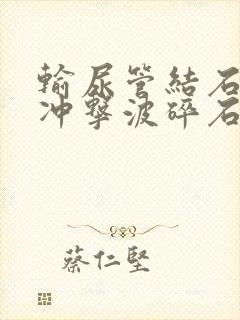 輸尿管結石
冲擊波碎石
蔡仁堅